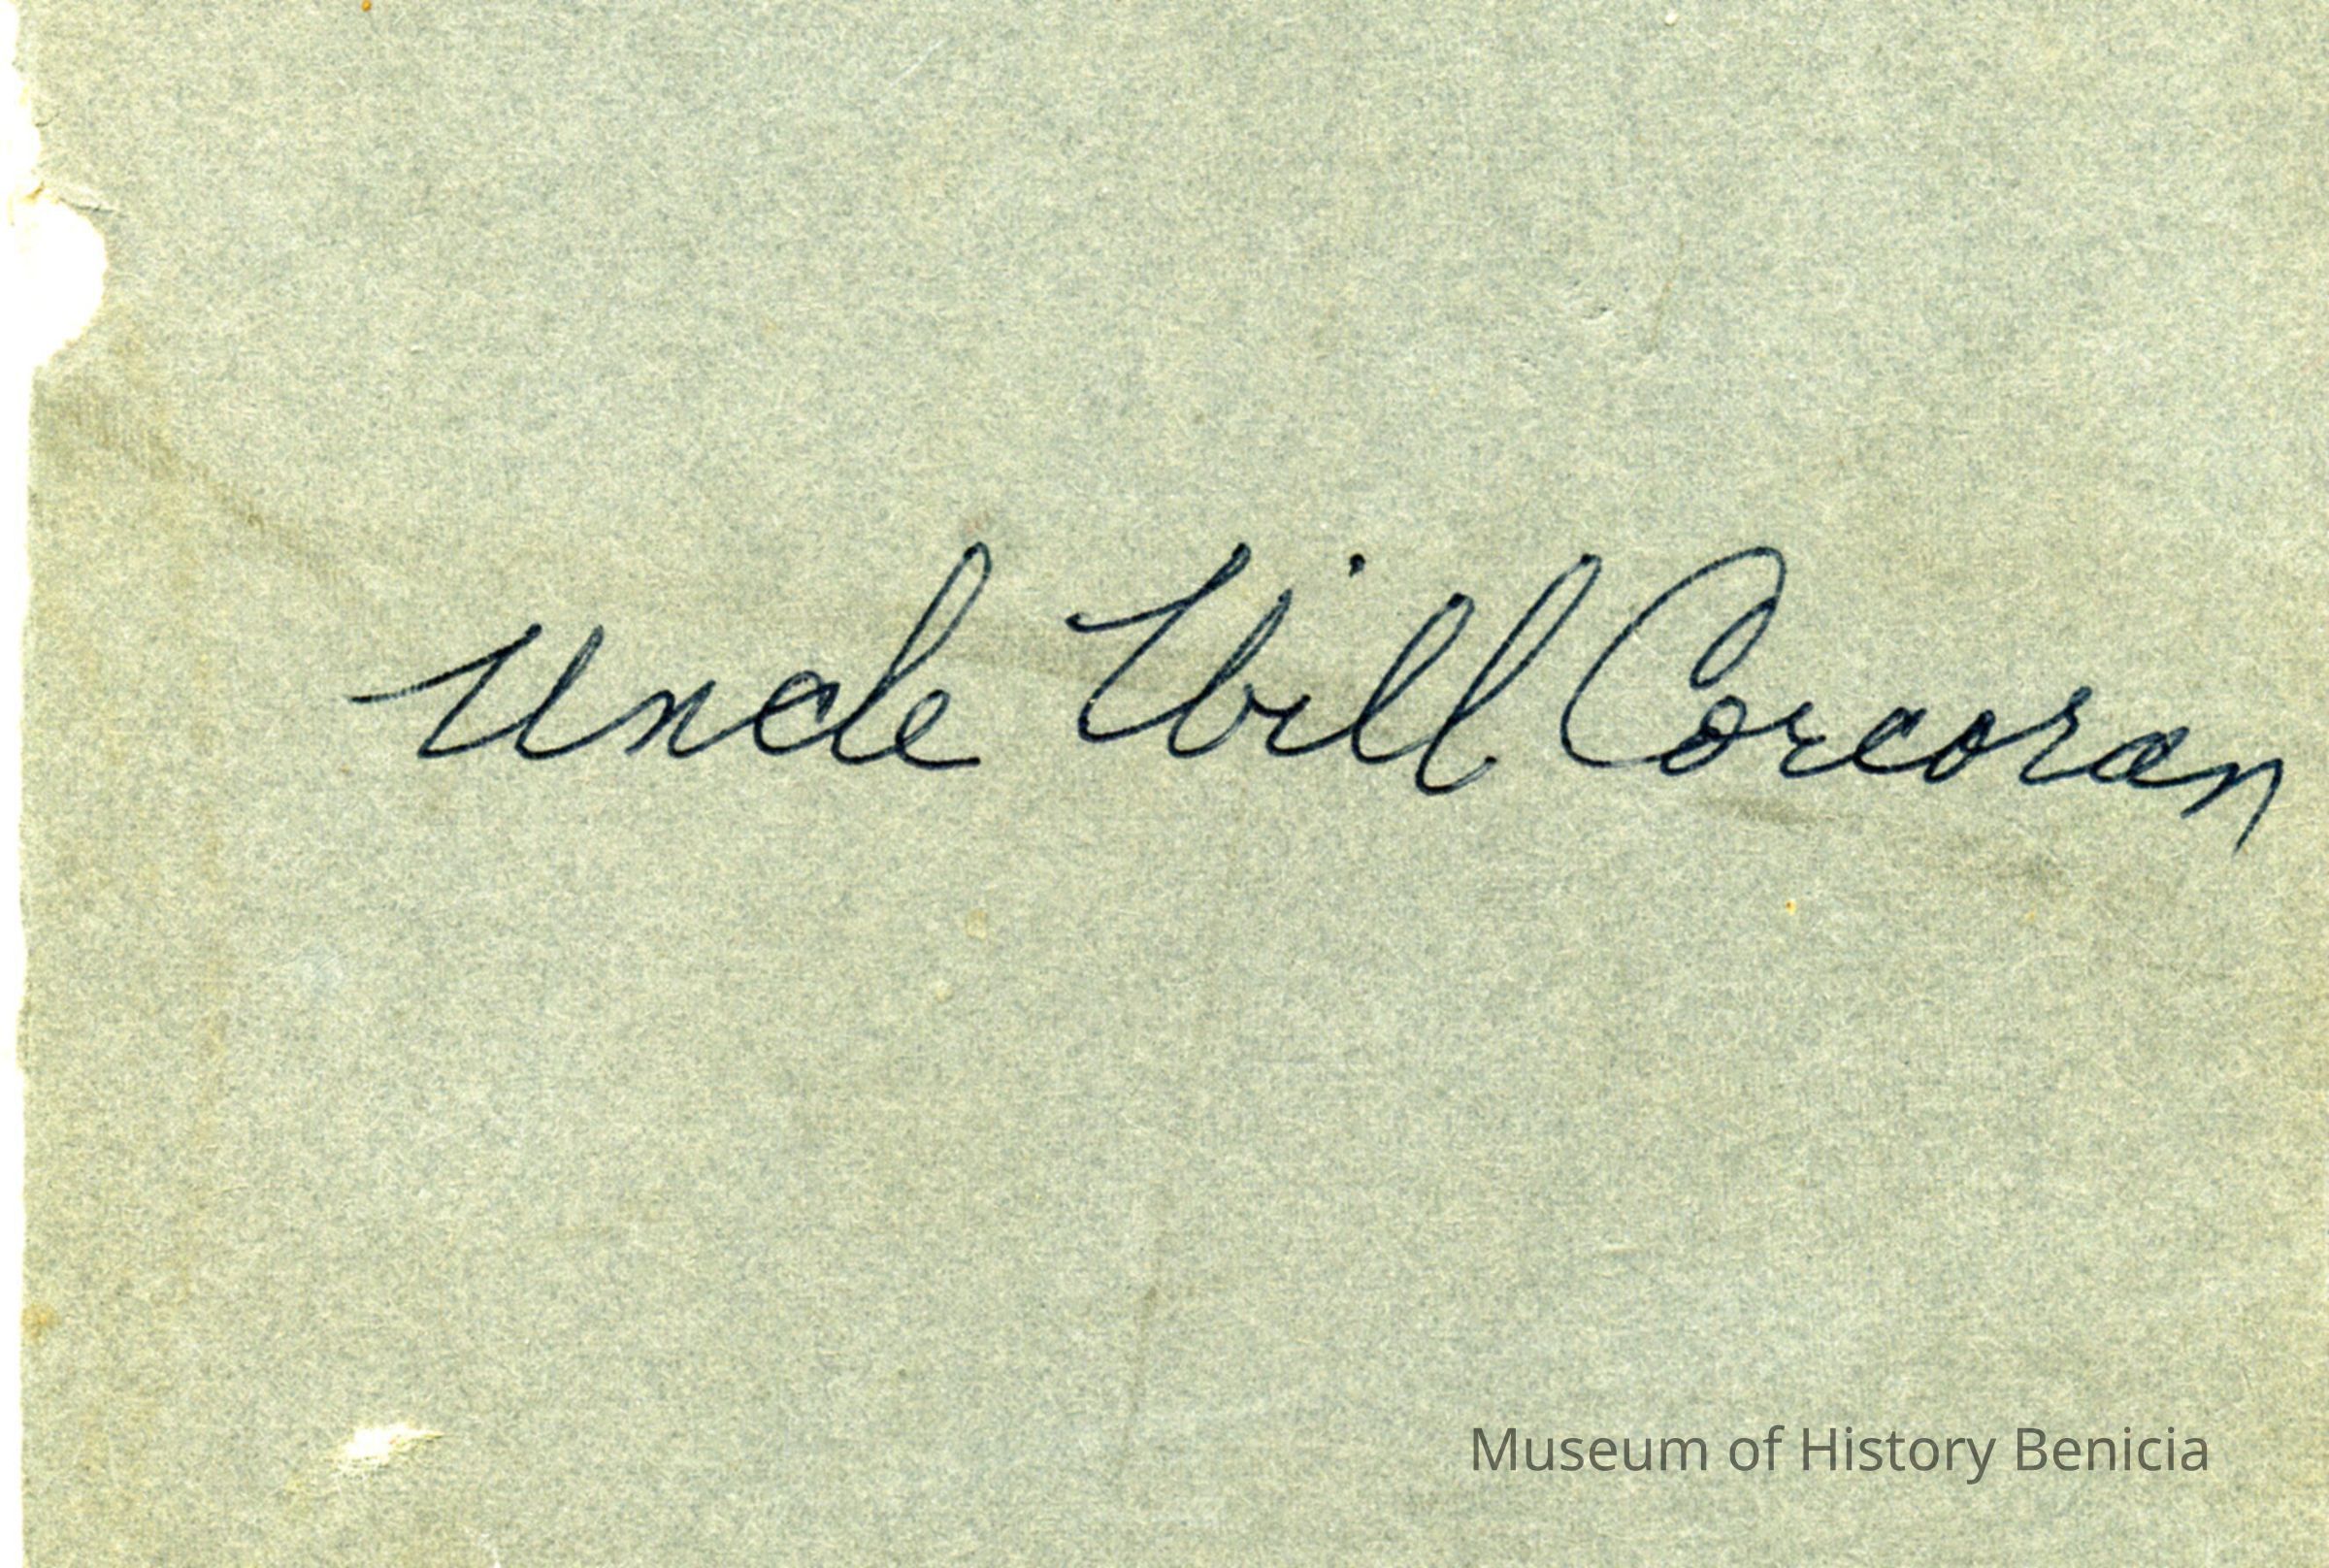 Uncle Will Corcoran
Museum of History Benicia